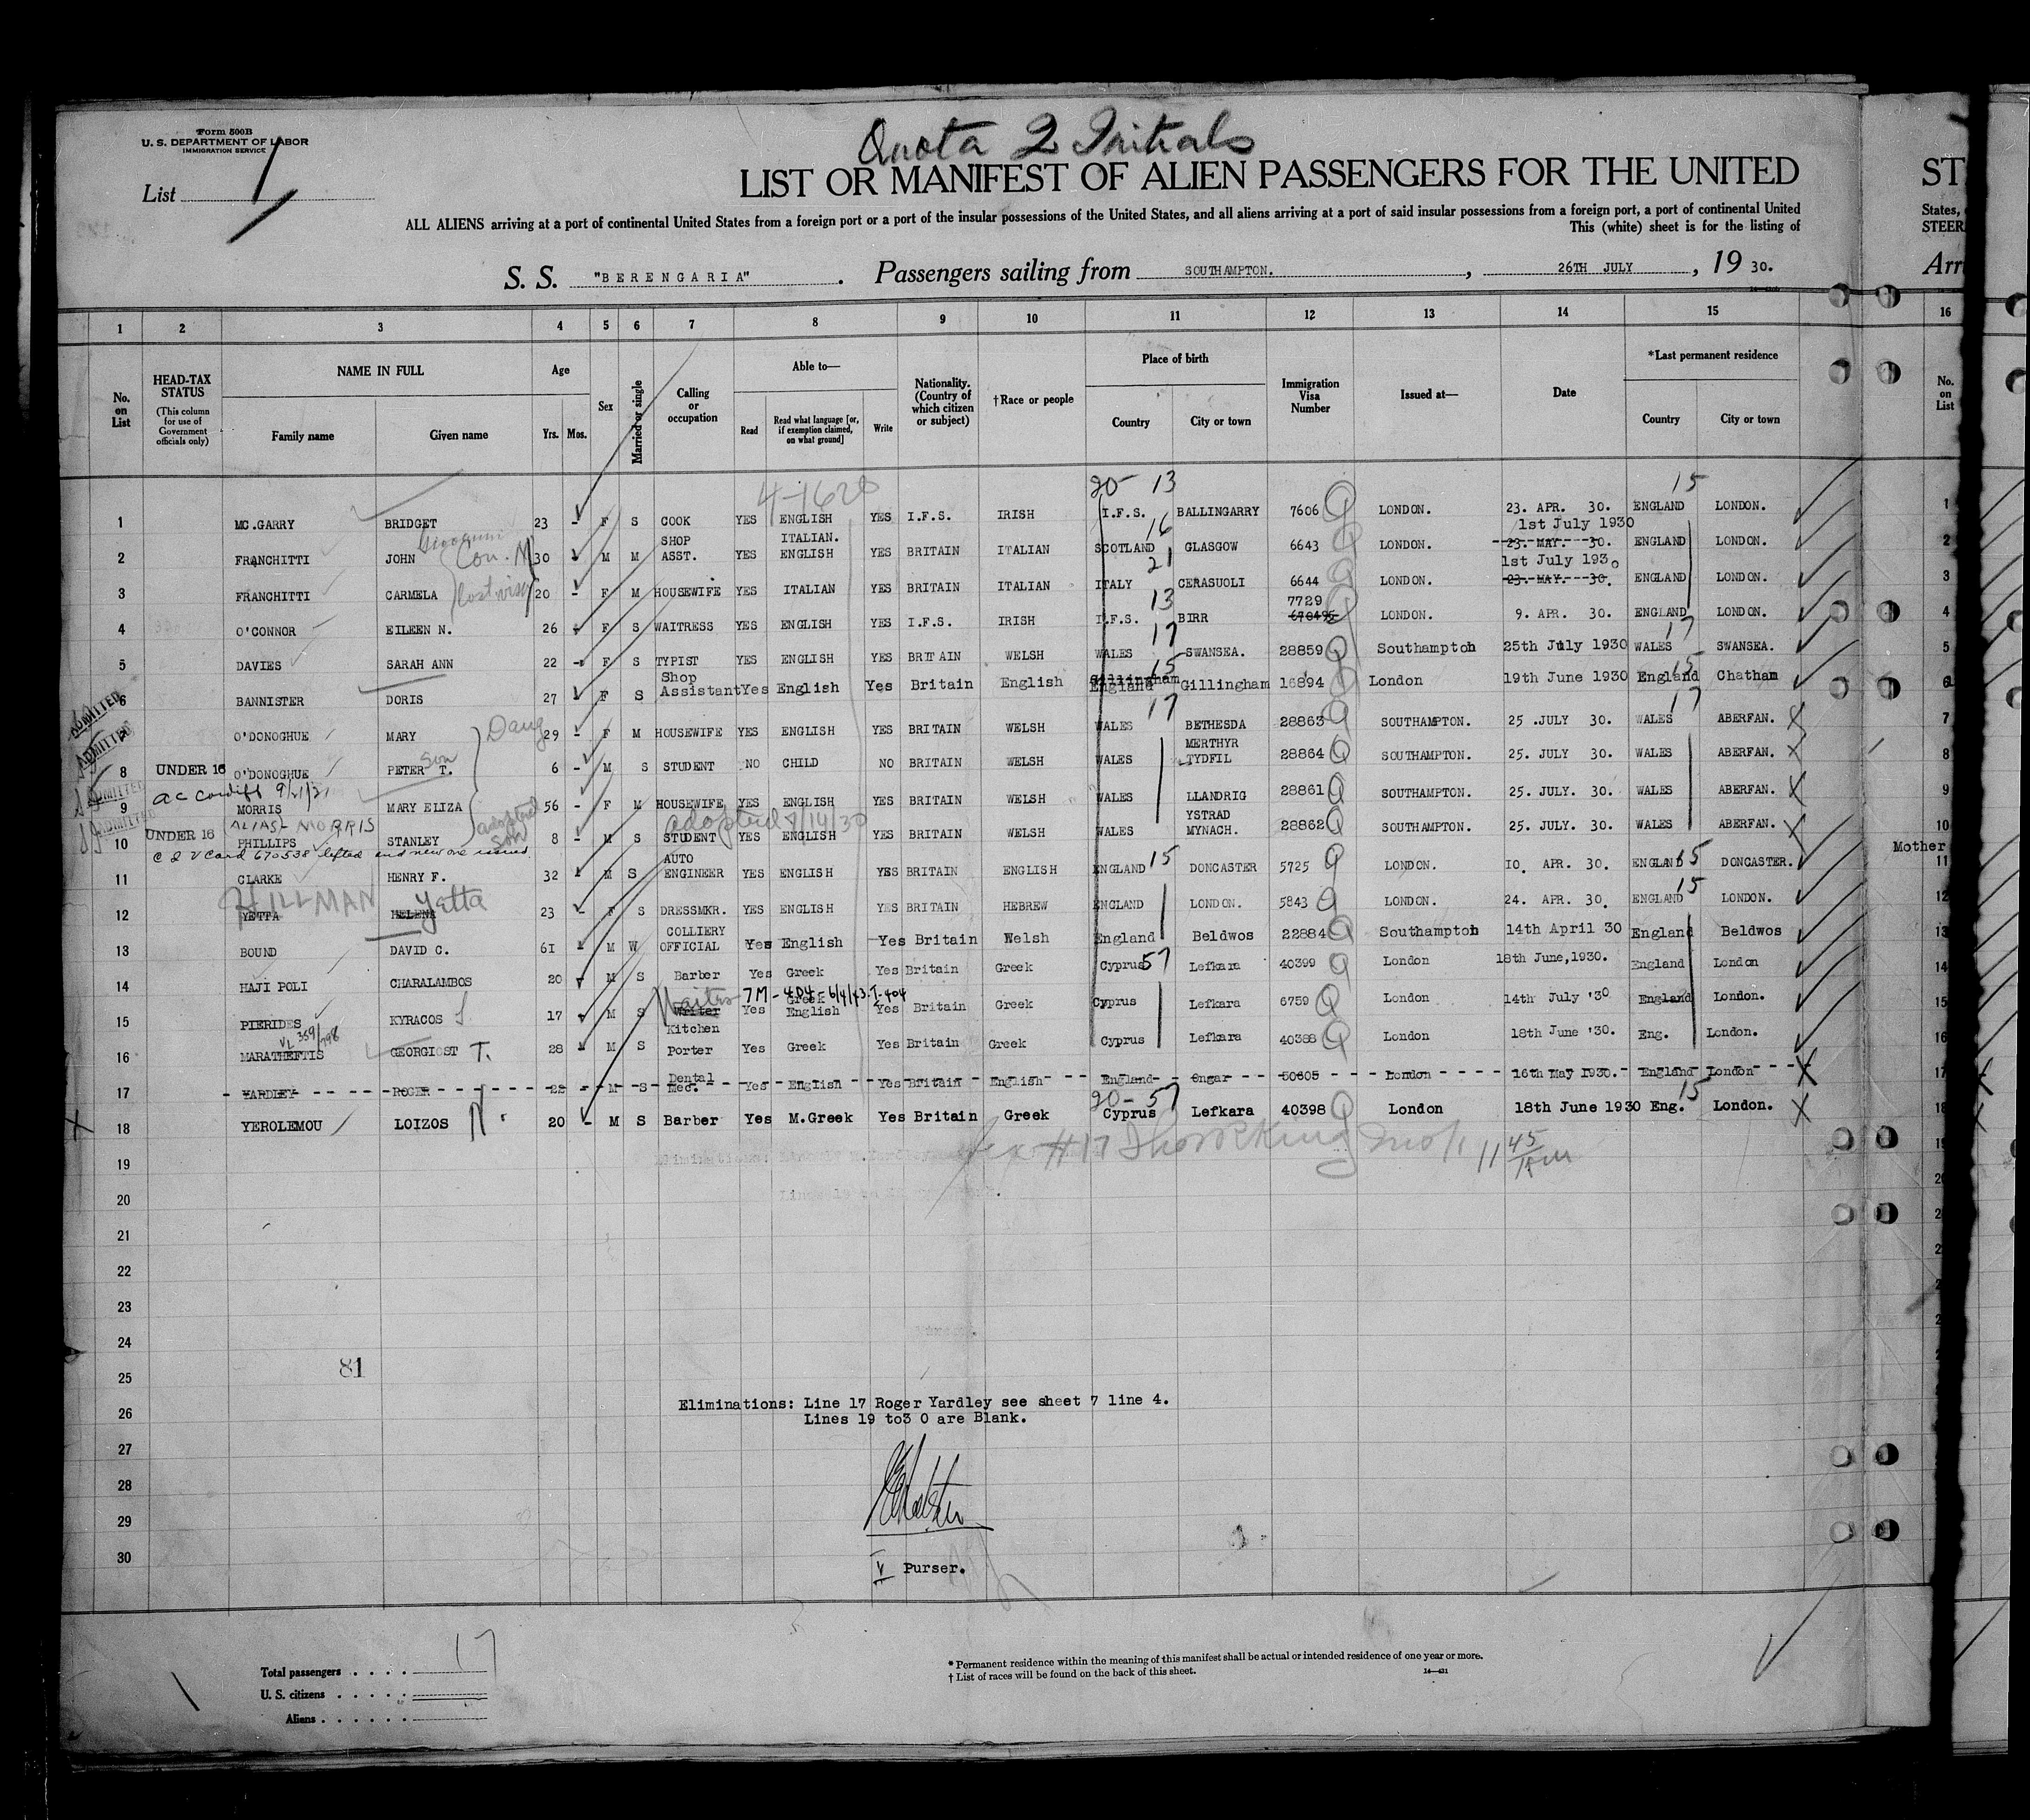 Form 500B
U. S. DEPARTMENT OF LABOR
IMMIGRATION SERVICE
List 1
Quota 2 Initials
LIST OR MANIFEST OF ALIEN PASSENGERS FOR THE UNITED
ST
ALL ALIENS arriving at a port of continental United States from a foreign port or a port of the insular possessions of the United States, and all aliens arriving at a port of said insular possessions from a foreign port, a port of continental United
States,
This (white) sheet is for the listing of
STEER
S. S. "BERENGARIA". Passengers sailing from SOUTHAMPTON., 26TH JULY, 19 30.
Arr
1 2 3 4 5 6 7 8 9 10 11 12 13 14 15 16
No. on List
HEAD-TAX STATUS
(This column for use of Government officials only)
NAME IN FULL
Family name Given name
Age
Yrs. Mos.
Sex
Married or single
Calling or occupation
Able to—
Read
Read what language [or, if exemption claimed, on what ground]
Write
Nationality. (Country of which citizen or subject)
†Race or people
Place of birth
Country City or town
Immigration Visa Number
Issued at—
Date
*Last permanent residence
Country City or town
No. on List
4-1628 20- 13 15
1 MC.GARRY BRIDGET 23 - F S COOK YES ENGLISH YES I.F.S. IRISH I.F.S. BALLINGARRY 7606 Q LONDON. 23. APR. 30. ENGLAND LONDON. 1
SHOP ITALIAN. 16 1st July 1930
2 FRANCHITTI JOHN 30 M M ASST. YES ENGLISH YES BRITAIN ITALIAN SCOTLAND GLASGOW 6643 Q LONDON. 23. MAY. 30. ENGLAND LONDON. 2
21 1st July 1930
3 FRANCHITTI CARMELA 20 - F M HOUSEWIFE YES ITALIAN YES BRITAIN ITALIAN ITALY CERASUOLI 6644 Q LONDON. 23. MAY. 30. ENGLAND LONDON. 3
13 7729
4 O'CONNOR EILEEN N. 26 F S WAITRESS YES ENGLISH YES I.F.S. IRISH I.F.S. BIRR LONDON. 9. APR. 30. ENGLAND LONDON. 4
17 17
5 DAVIES SARAH ANN 22 - F S TYPIST YES ENGLISH YES BRITAIN WELSH WALES SWANSEA. 28859 Q Southampton 25th July 1930 WALES SWANSEA. 5
Shop 15 Gillingham 15
6 BANNISTER DORIS 27 F S Assistant Yes English Yes Britain English England Gillingham 16894 Q London 19th June 1930 England Chatham 6
ADMITTED Daug 17 17
7 O'DONOGHUE MARY 29 - F M HOUSEWIFE YES ENGLISH YES BRITAIN WELSH WALES BETHESDA 28863 Q SOUTHAMPTON. 25 .JULY 30. WALES ABERFAN. 7
ADMITTED Son MERTHYR
8 UNDER 16 O'DONOGHUE PETER T. 6 - M S STUDENT NO CHILD NO BRITAIN WELSH WALES TYDFIL 28864 Q SOUTHAMPTON. 25. JULY 30. WALES ABERFAN. 8
ADMITTED ac Cardiff 9/21/21
9 MORRIS MARY ELIZA 56 - F M HOUSEWIFE YES ENGLISH YES BRITAIN WELSH WALES LLANDRIG 28861 Q SOUTHAMPTON. 25. JULY. 30. WALES ABERFAN. 9
ADMITTED ALIAS- MORRIS adopted son adopted 7/14/30 YSTRAD
10 UNDER 16 PHILLIPS STANLEY 8 - M S STUDENT YES ENGLISH YES BRITAIN WELSH WALES MYNACH. 28862 Q SOUTHAMPTON. 25. JULY. 30. WALES ABERFAN. 10
C & V Card 670538 lifted and new one issued.
Mother
AUTO 15 15
11 CLARKE HENRY F. 32 M S ENGINEER YES ENGLISH YES BRITAIN ENGLISH ENGLAND DONCASTER 5725 Q LONDON. 10. APR. 30. ENGLAND DONCASTER. 11
HILLMAN Yetta 15
12 YETTA HELENA 23 - F S DRESSMKR. YES ENGLISH YES BRITAIN HEBREW ENGLAND LONDON. 5843 Q LONDON. 24. APR. 30. ENGLAND LONDON. 12
COLLIERY
13 BOUND DAVID C. 61 M W OFFICIAL Yes English Yes Britain Welsh England Beldwos 22884 Q Southampton 14th April 30 England Beldwos 13
57
14 HAJI POLI CHARALAMBOS 20 M S Barber Yes Greek Yes Britain Greek Cyprus Lefkara 40399 Q London 18th June,1930. England London 14
Waiter 7M-404-6/4/43.I-404 Greek
15 PIERIDES KYRACOS 17 M S Writer Yes English Yes Britain Greek Cyprus Lefkara 6759 Q London 14th July '30 England London. 15
VL 359/798 Kitchen
16 MARATHEFTIS GEORGIOST T. 28 M S Porter Yes Greek Yes Britain Greek Cyprus Lefkara 40388 Q London 18th June '30. Eng. London. 16
Dental
17 YARDLEY ROGER 22 - M S Med. Yes English Yes Britain English England Ongar 50605 London 16th May 1930. England London 17
20- 57 15
18 YEROLEMOU LOIZOS 20 - M S Barber Yes M.Greek Yes Britain Greek Cyprus Lefkara 40398 Q London 18th June 1930 Eng. London. 18
19 #17 11 45
20
21
22
23
24
81
25
26 Eliminations: Line 17 Roger Yardley see sheet 7 line 4.
Lines 19 to3 0 are Blank.
27
28
29
30 Purser.
Total passengers . . . . 17
U. S. citizens . . . . .
Aliens . . . . . .
* Permanent residence within the meaning of this manifest shall be actual or intended residence of one year or more.
† List of races will be found on the back of this sheet.
14—431